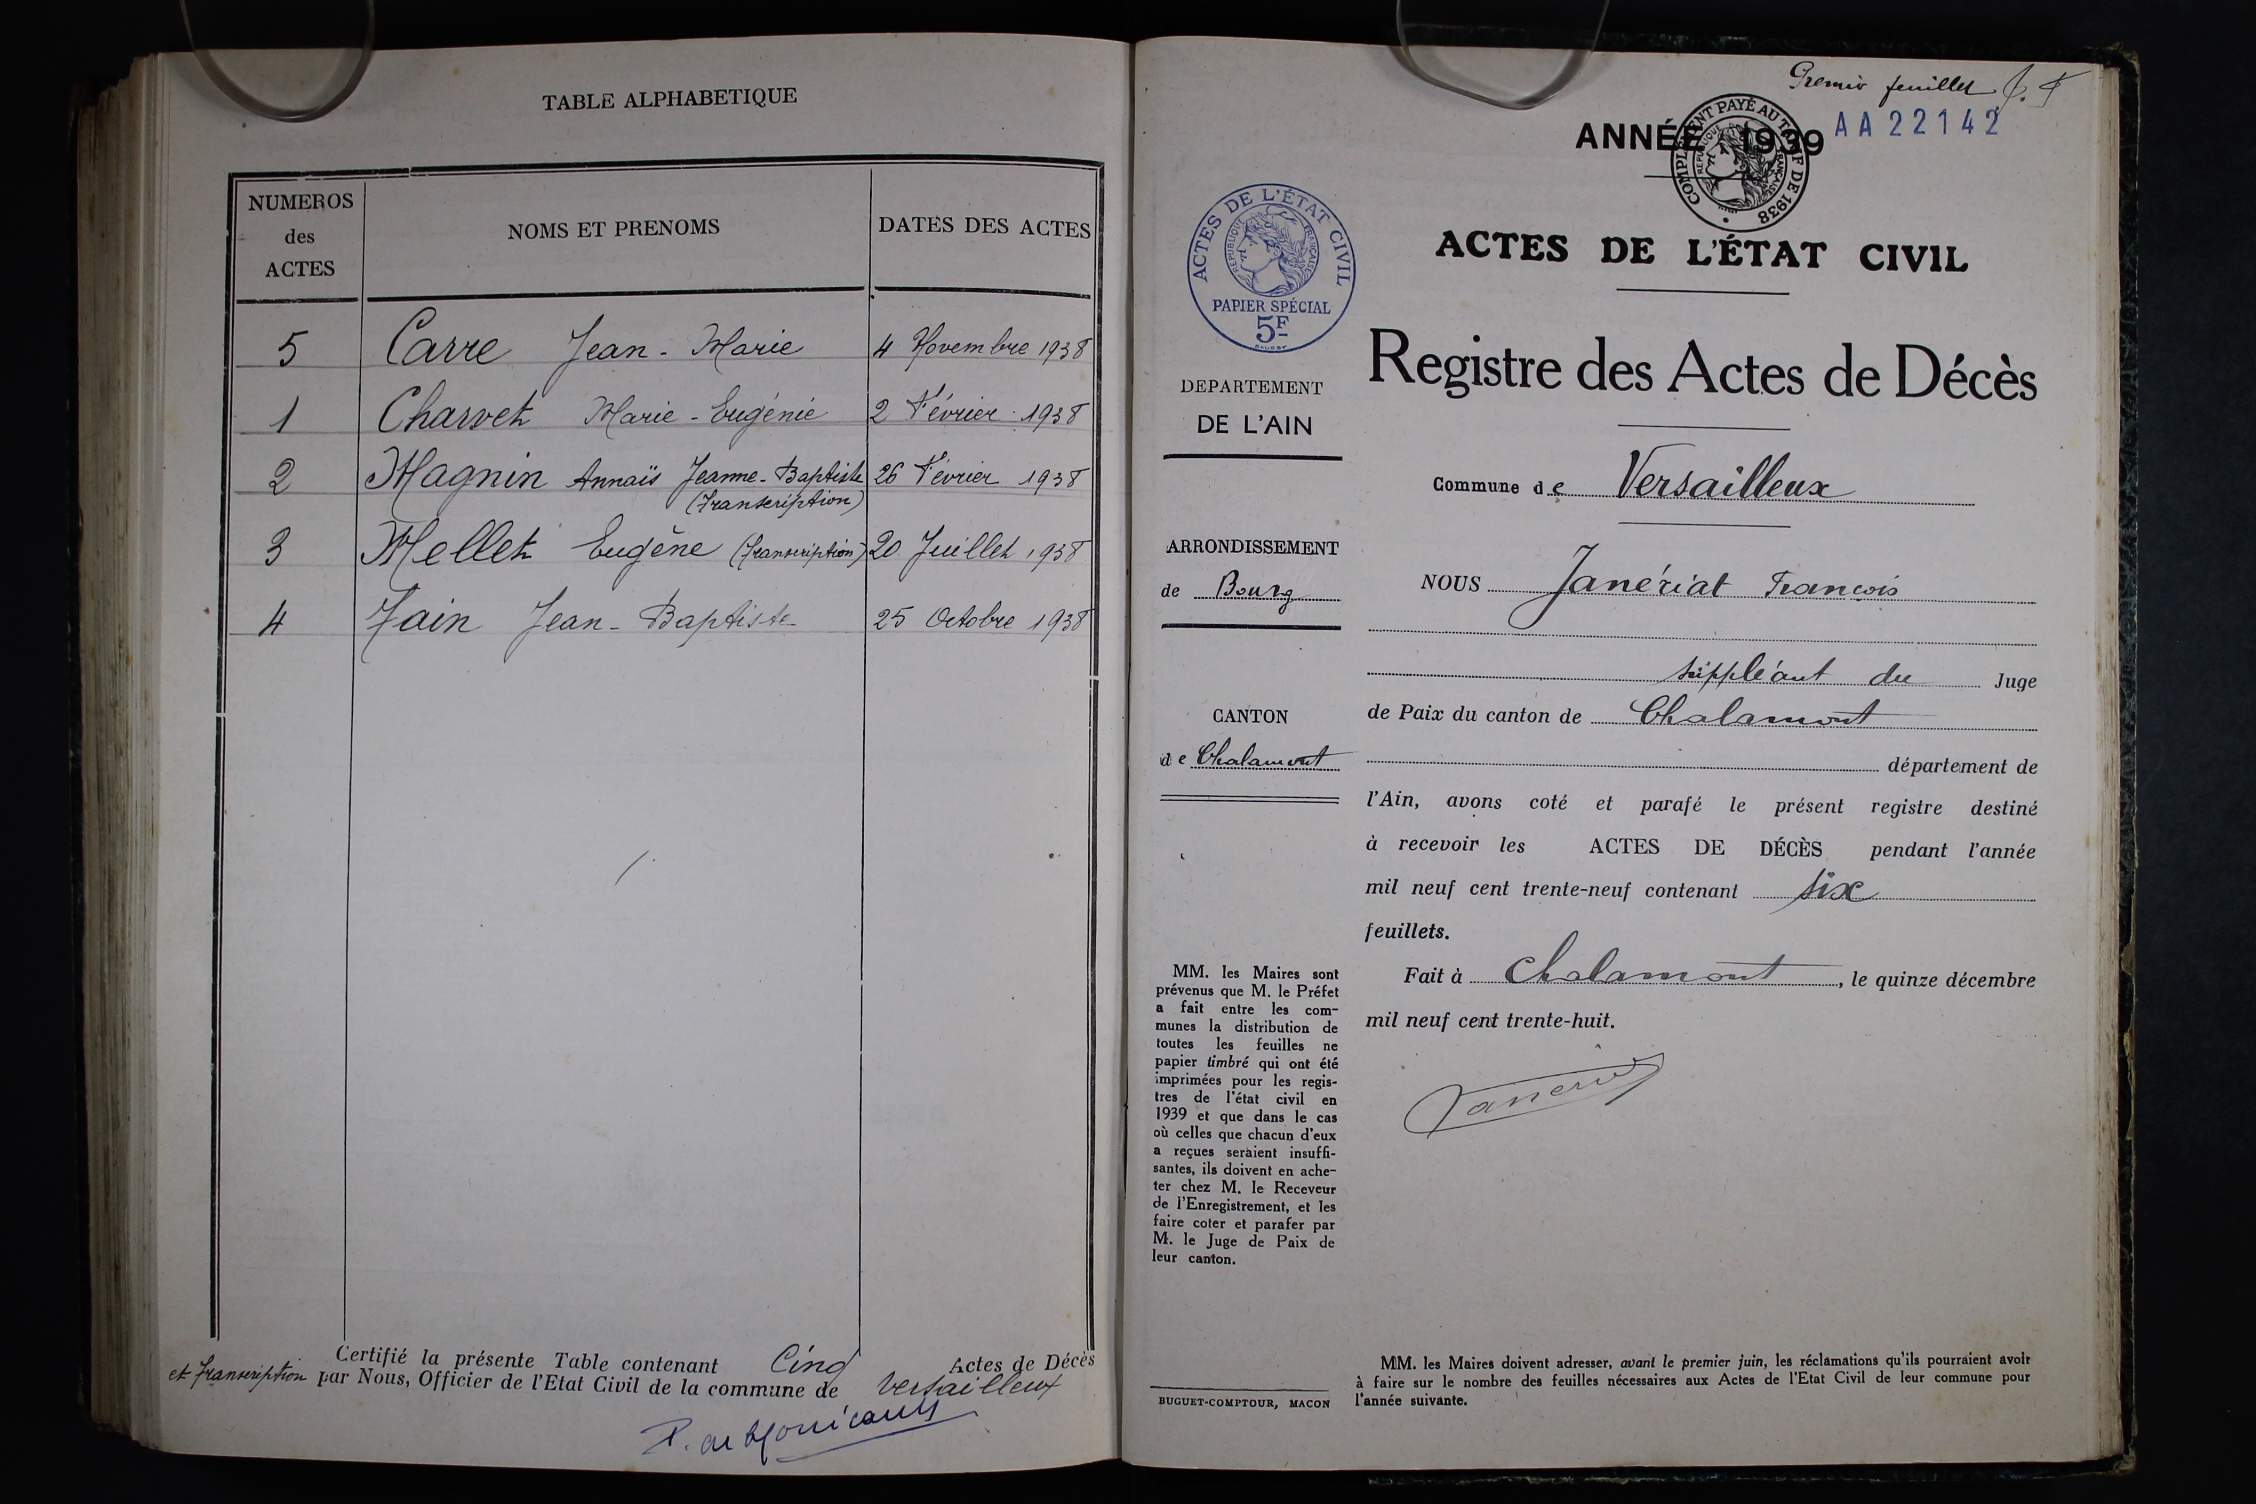 TABLE ALPHABETIQUE
NUMEROS
des
ACTES
NOMS ET PRENOMS
DATES DES ACTES
5 Carre Jean-Marie 4 Novembre 1938
1 Charvet Marie-Eugénie 2 Février 1938
2 Magnin Annaïs Jeanne-Baptiste 26 Février 1938
(Transcription)
3 Mellet Eugène (Transcription) 20 Juillet 1938
4 Jean-Baptiste 25 Octobre 1938
Certifié la présente Table contenant Cinq Actes de Décès
et transcription par Nous, Officier de l'Etat Civil de la commune de Versailleux
Premier feuillet
ANNÉE 1939
AA22142
COMPLÉMENT PAYÉ AU TARIF DE 1938
RÉPUBLIQUE FRANÇAISE
ACTES DE L'ÉTAT CIVIL
RÉPUBLIQUE FRANÇAISE
PAPIER SPÉCIAL
5F
DEPARTEMENT
DE L'AIN
ARRONDISSEMENT
de Bourg
CANTON
de Chalamont
MM. les Maires sont
prévenus que M. le Préfet
a fait entre les com-
munes la distribution de
toutes les feuilles ne
papier timbré qui ont été
imprimées pour les regis-
tres de l'état civil en
1939 et que dans le cas
où celles que chacun d'eux
a reçues seraient insuffi-
santes, ils doivent en ache-
ter chez M. le Receveur
de l'Enregistrement, et les
faire coter et parafer par
M. le Juge de Paix de
leur canton.
BUGUET-COMPTOUR, MACON
ACTES DE L'ÉTAT CIVIL
Registre des Actes de Décès
Commune de Versailleux
NOUS Janériat François
suppléant du Juge
de Paix du canton de Chalamont
département de
l'Ain, avons coté et parafé le présent registre destiné
à recevoir les ACTES DE DÉCÈS pendant l'année
mil neuf cent trente-neuf contenant six
feuillets.
Fait à Chalamont, le quinze décembre
mil neuf cent trente-huit.
MM. les Maires doivent adresser, avant le premier juin, les réclamations qu'ils pourraient avoir
à faire sur le nombre des feuilles nécessaires aux Actes de l'Etat Civil de leur commune pour
l'année suivante.